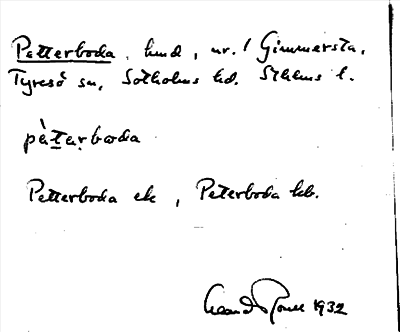 Petterboda, lund, nr. 1 Gimmersta,
Tyresö sn, Sotholms hd. Sthlms l.
pètarboda
Petterboda ek, Peterboda kb.
1932